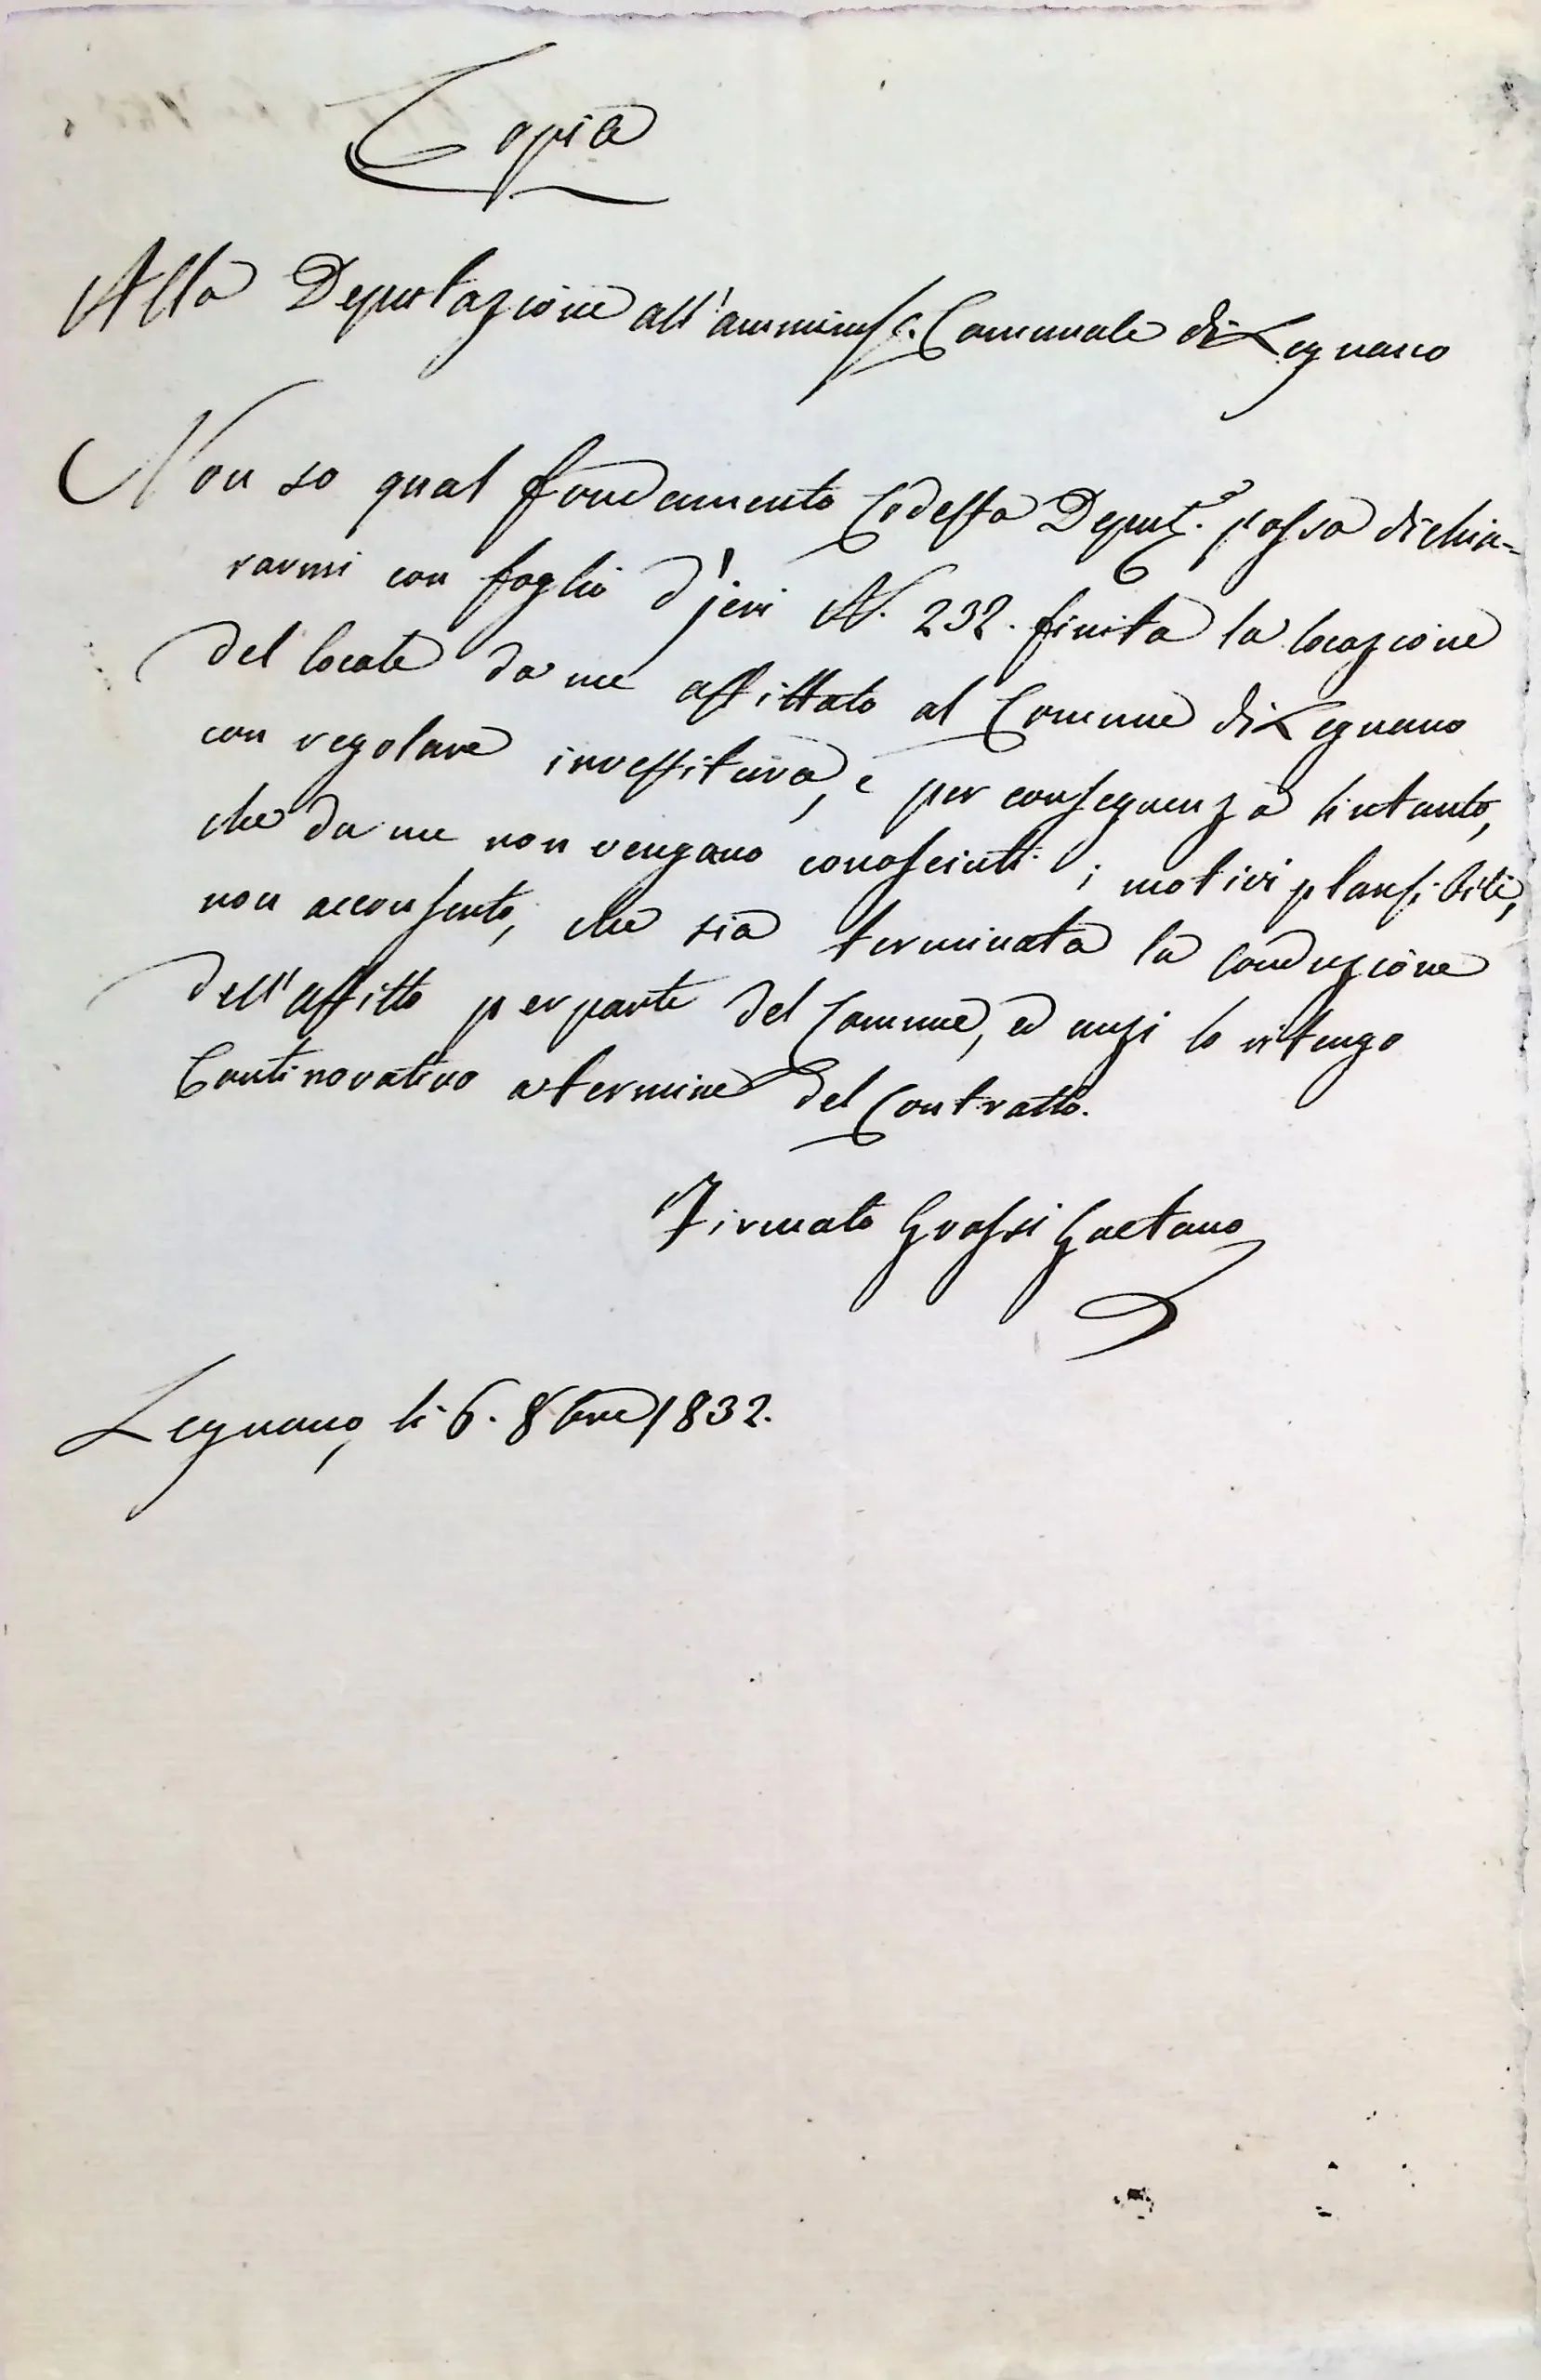 Copia
Alla Deputazione all'amminist. Comunale di Legnano
Non so qual fondamento Codesta Deput.e possa dichia=
rarmi con foglio d'jeri N. 232. finita la locazione
del locale da me affittato al Comune di Legnano
con regolare investitura, e per conseguenza sintanto,
che da me non vengano conosciuti i motivi plausibili,
non acconsento, che sia terminata la conduzione
dell'affitto per parte del Comune, ed anzi lo ritengo
Continovativo a termine del Contratto.
Firmato Grassi Gaetano
Legnano, li 6. 8bre 1832.